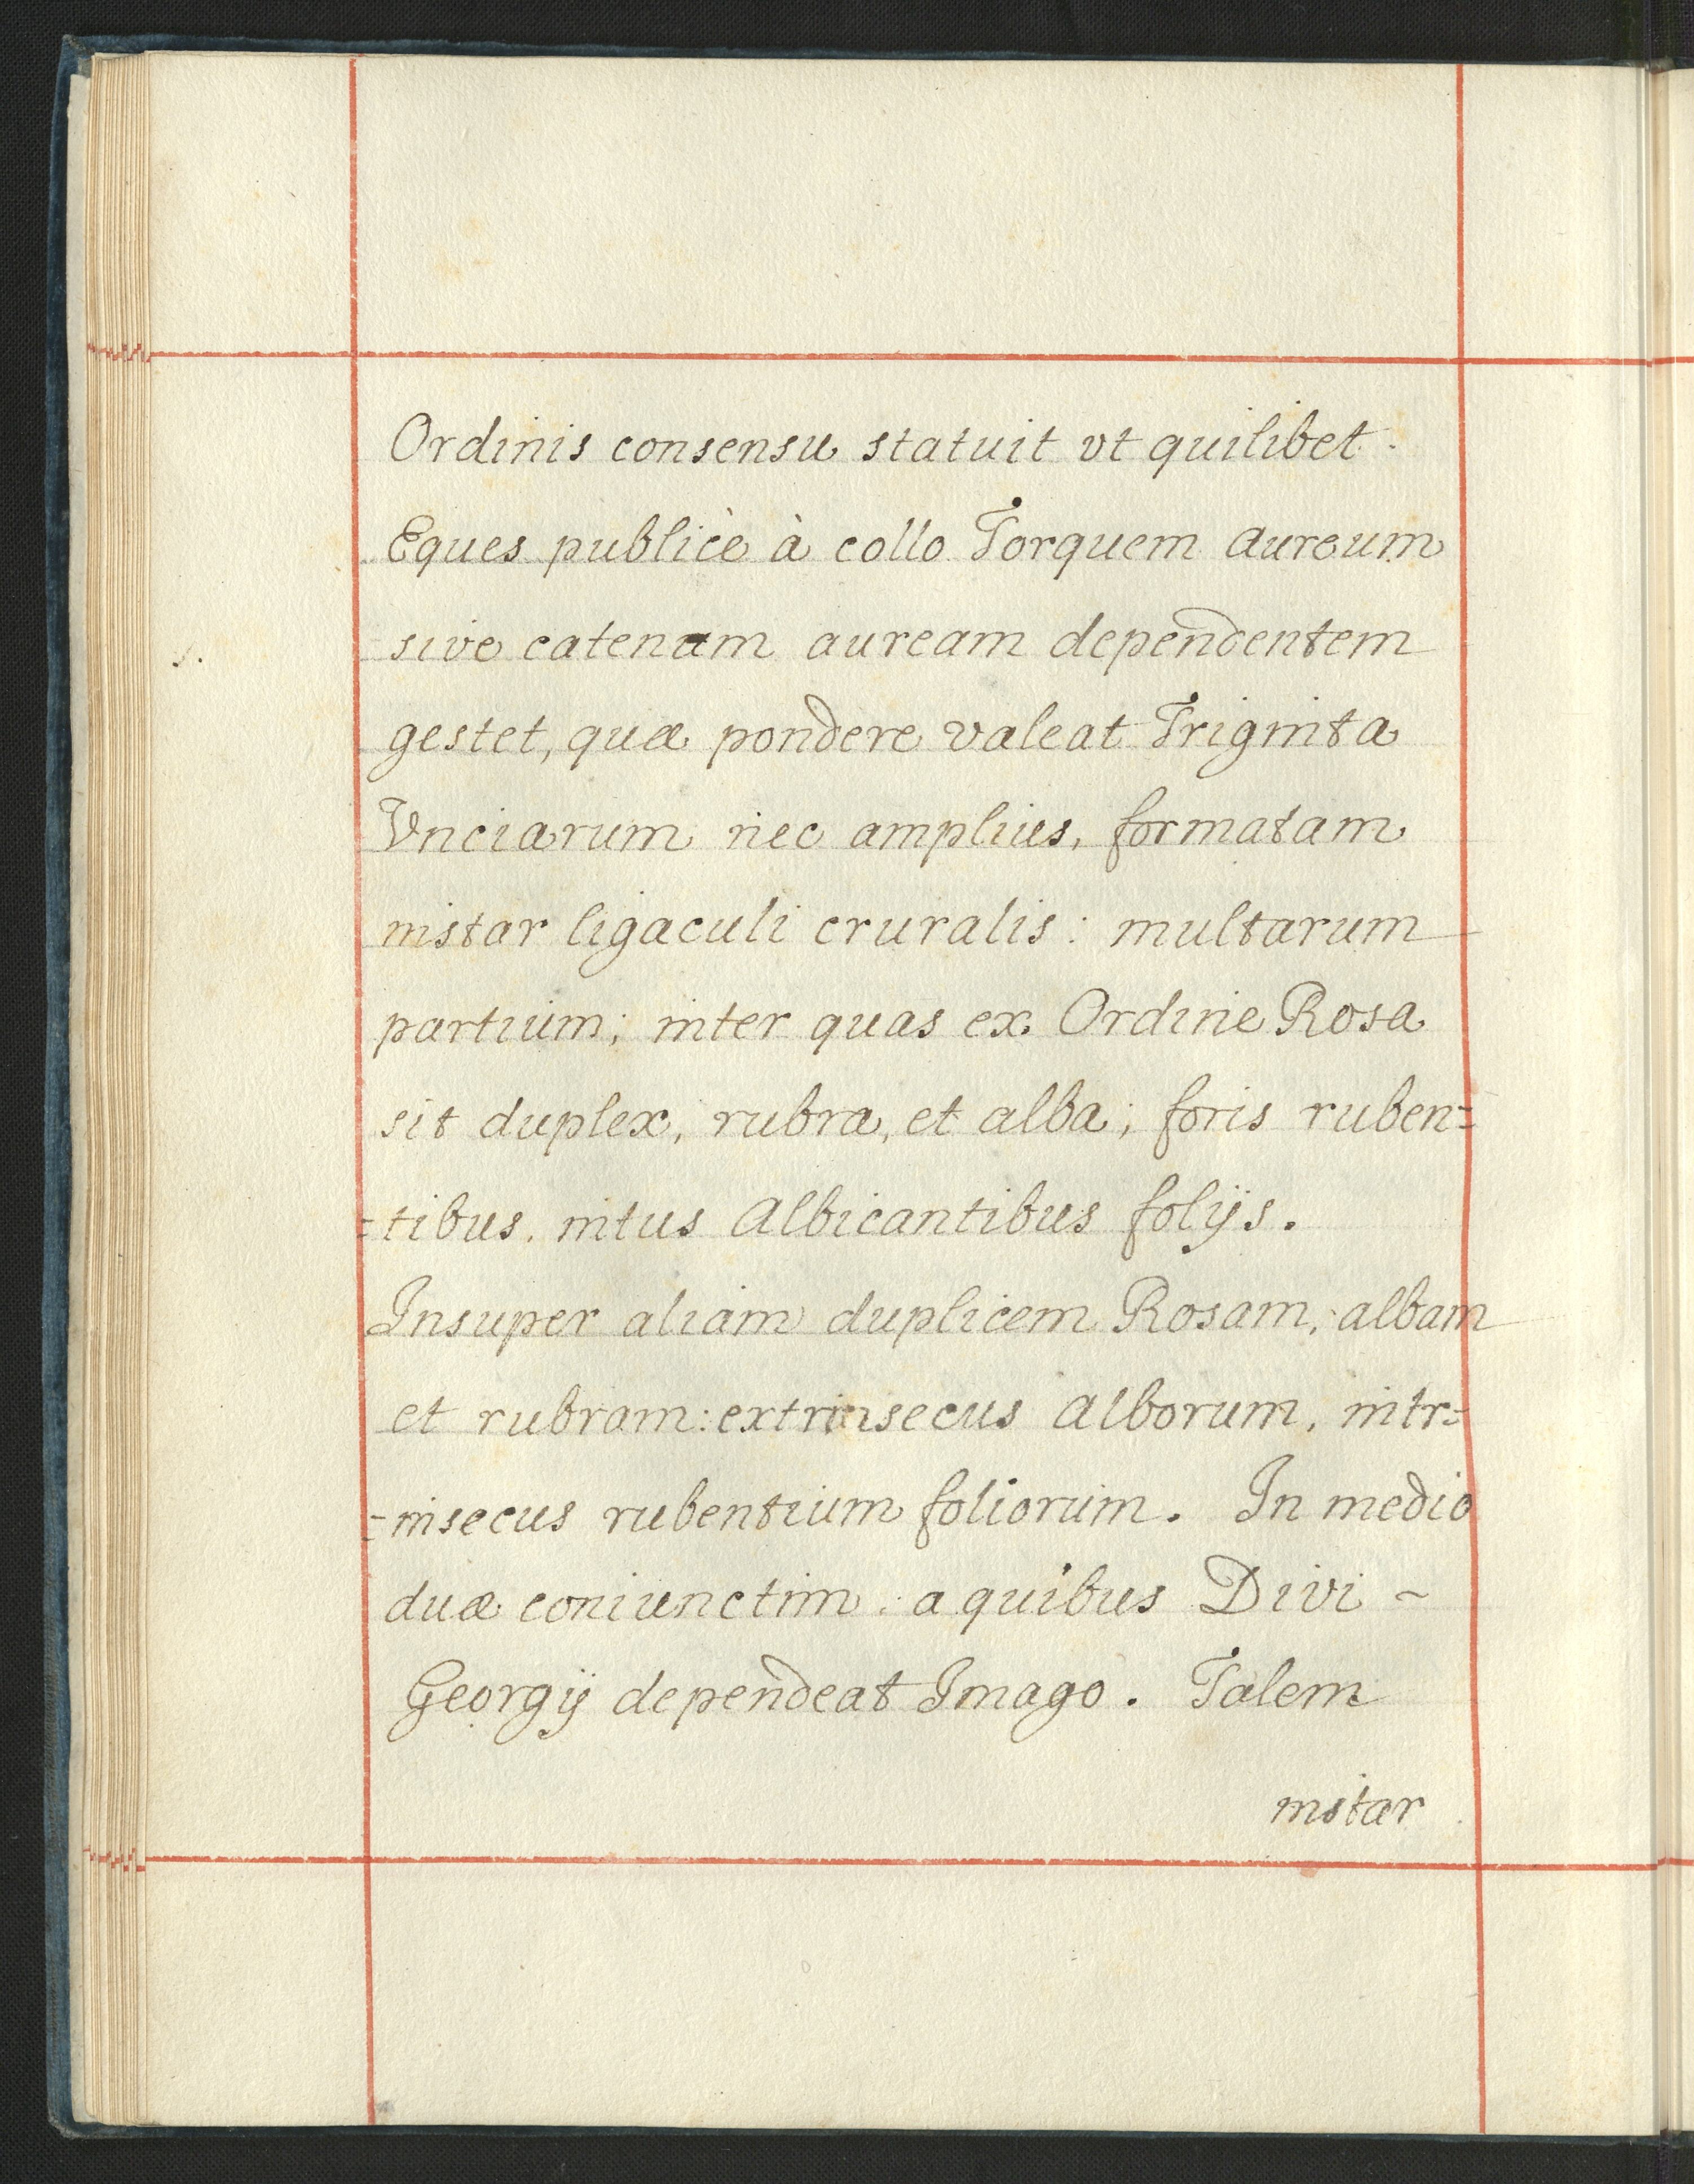 Ordinis consensu statuit vt quilibet
Eques publicè à collo Torquem aureum
sive catenam auream dependentem
gestet, quæ pondere valeat Triginta
Vnciarum nec amplius, formatam
instar ligaculi cruralis: multarum
partium; inter quas ex Ordine Rosa
sit duplex, rubra, et alba; foris ruben=
=tibus, intus Albicantibus folijs.
Insuper aliam duplicem Rosam, albam
et rubram: extrinsecus Alborum, intr=
=insecus rubentium foliorum. In medio
duæ coniunctim: a quibus Divi ~
Georgij dependeat Imago. Talem
instar